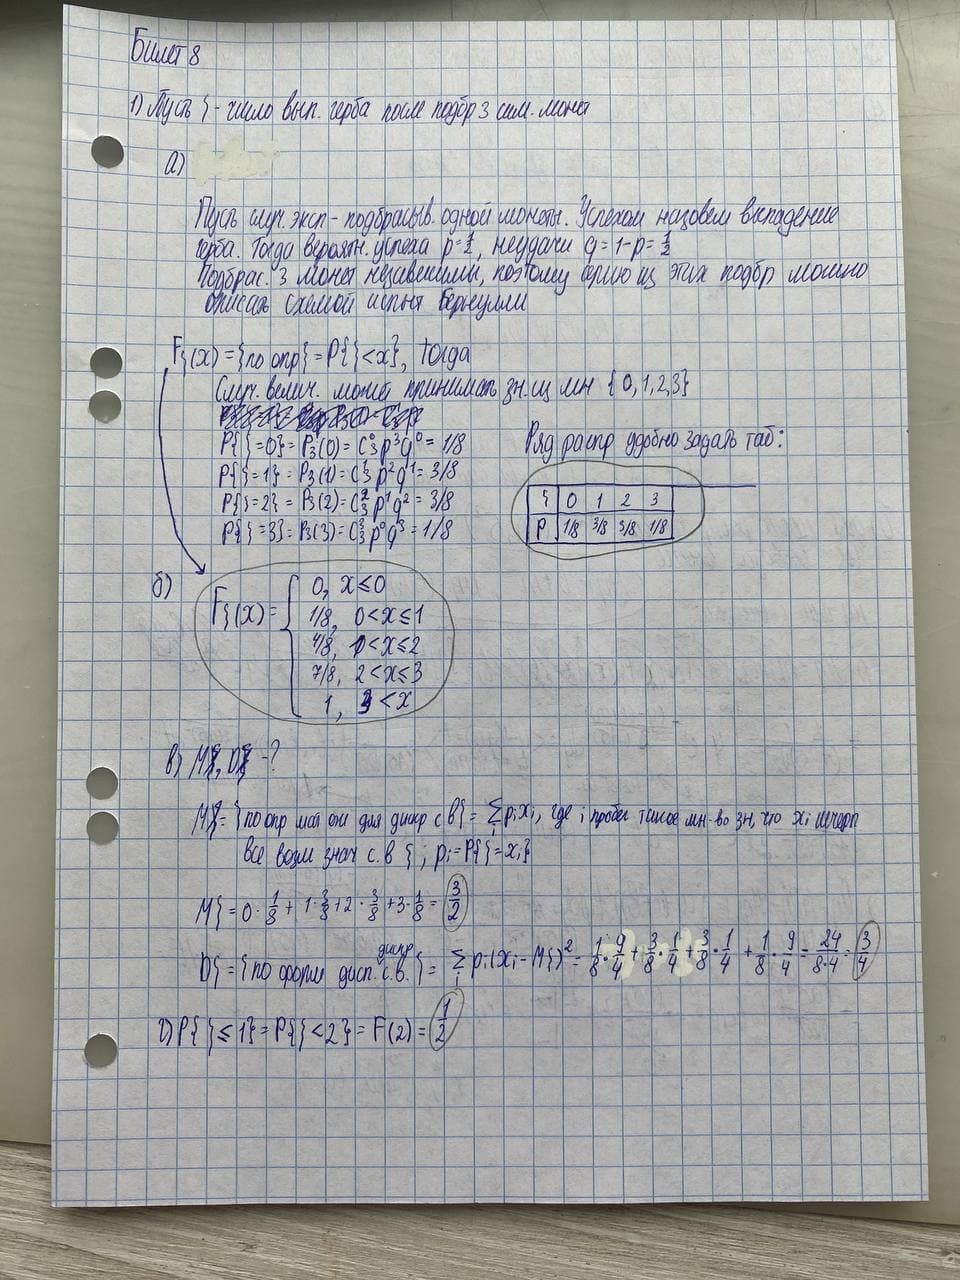 Билет 8
1) Пусть ξ - число вып. герба после подбр 3 сим. монет
а)
Пусть случ. эксп - подбрасыв. одной монеты. Успехом назовем выпадение
герба. Тогда вероятн. успеха p=1/2, неудачи q=1-p=1/2
Подбрас. 3 монет независимы, поэтому серию из этих подбр можно
описать схемой испыт Бернулли
Fξ(x) = {по опр} = P{ξ<x}, Тогда
Случ. велич. может принимать зн. из мн {0,1,2,3}
P{ξ=0} = P₃(0) = C₃⁰p³q⁰ = 1/8
P{ξ=1} = P₃(1) = C₃¹p²q¹ = 3/8
P{ξ=2} = P₃(2) = C₃²p¹q² = 3/8
P{ξ=3} = P₃(3) = C₃³p⁰q³ = 1/8
Ряд распр удобно задать таб:
ξ 0 1 2 3
P 1/8 3/8 3/8 1/8
б)
Fξ(x) =
0, x≤0
1/8, 0<x≤1
4/8, 1<x≤2
7/8, 2<x≤3
1, 3<x
в) Mξ, Dξ -?
Mξ = {по опр мат ож для дискр с в} = Σᵢ pᵢxᵢ, где i пробег такое мн-во зн, что xᵢ исчерп
все возм знач с.в ξ; pᵢ=P{ξ=xᵢ}
Mξ = 0·1/8 + 1·3/8 + 2·3/8 + 3·1/8 = 3/2
Dξ = {по форме дисп. дискр с.в.} = Σᵢ pᵢ(xᵢ-Mξ)² = 1/8·9/4 + 3/8·1/4 + 3/8·1/4 + 1/8·9/4 = 24/8·4 = 3/4
г) P{ξ≤1} = P{ξ<2} = F(2) = 1/2